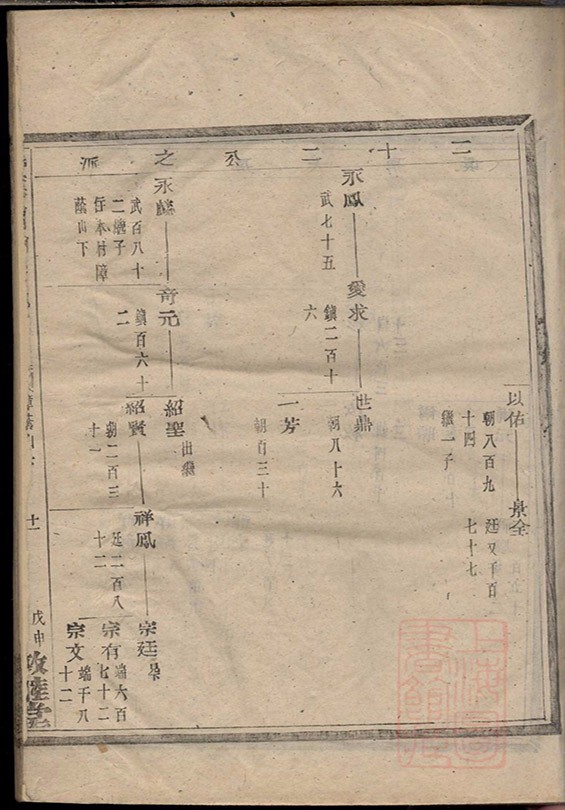 二十二公之派
以佑
朝八百九
十四
繼一子
景全
廷又千百
七十七
永鳳
武七十五
愛求
鎮二百十
六
世鼎
朝八十六
一芳
朝百三十
永
武百八十
二繼子
奇元
鎮百六十
二
紹聖
出繼
紹賢
朝二百三
十一
祥鳳
廷二百八
十二
宗廷
宗有
端六百
七十二
宗文
端千八
十二
十一
戊申
敦陸堂
上海圖書館藏